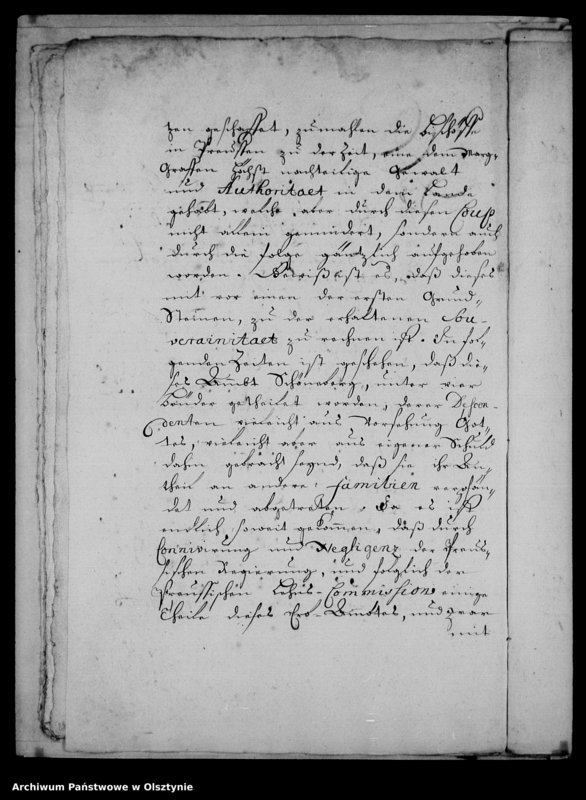 zen geschaffet, zumahlen die Bischöffe
in Preußen zu der Zeit, eine dem Marg-
Graffen höchst nachteilige Gewalt
und Authoritaet in dem Lande
gehabt, welche aber durch diesen Coup
nicht allein gemindert, sondern auch
durch die folge gäntzlich aufgehoben
worden. Gewiß ist es, daß dieses
mit vor einen der ersten Grund-
Steinen, zu der erhaltenen Sou-
verainitaet zu rechnen ist. In fol-
genden Zeiten ist geschehen, daß die-
ses Ambt Schöneberg, unter vier
Brüder getheilet worden, derer Descen-
denten vieleicht aus Vorsehung Got-
tes, vieleicht aber aus eigener Schuld
dahin gebracht seynd, daß sie ihr An-
theil an andere familien verpfän-
det und abgetreten. Da es ist
endlich soweit gekommen, daß durch
Connivirung und Negligenz der Preus-
sischen Regierung, und folglich der
Preussischen Lehns-Commission einige
Theile dieses Erb-Ambtes, und zwar
mit
Archiwum Państwowe w Olsztynie